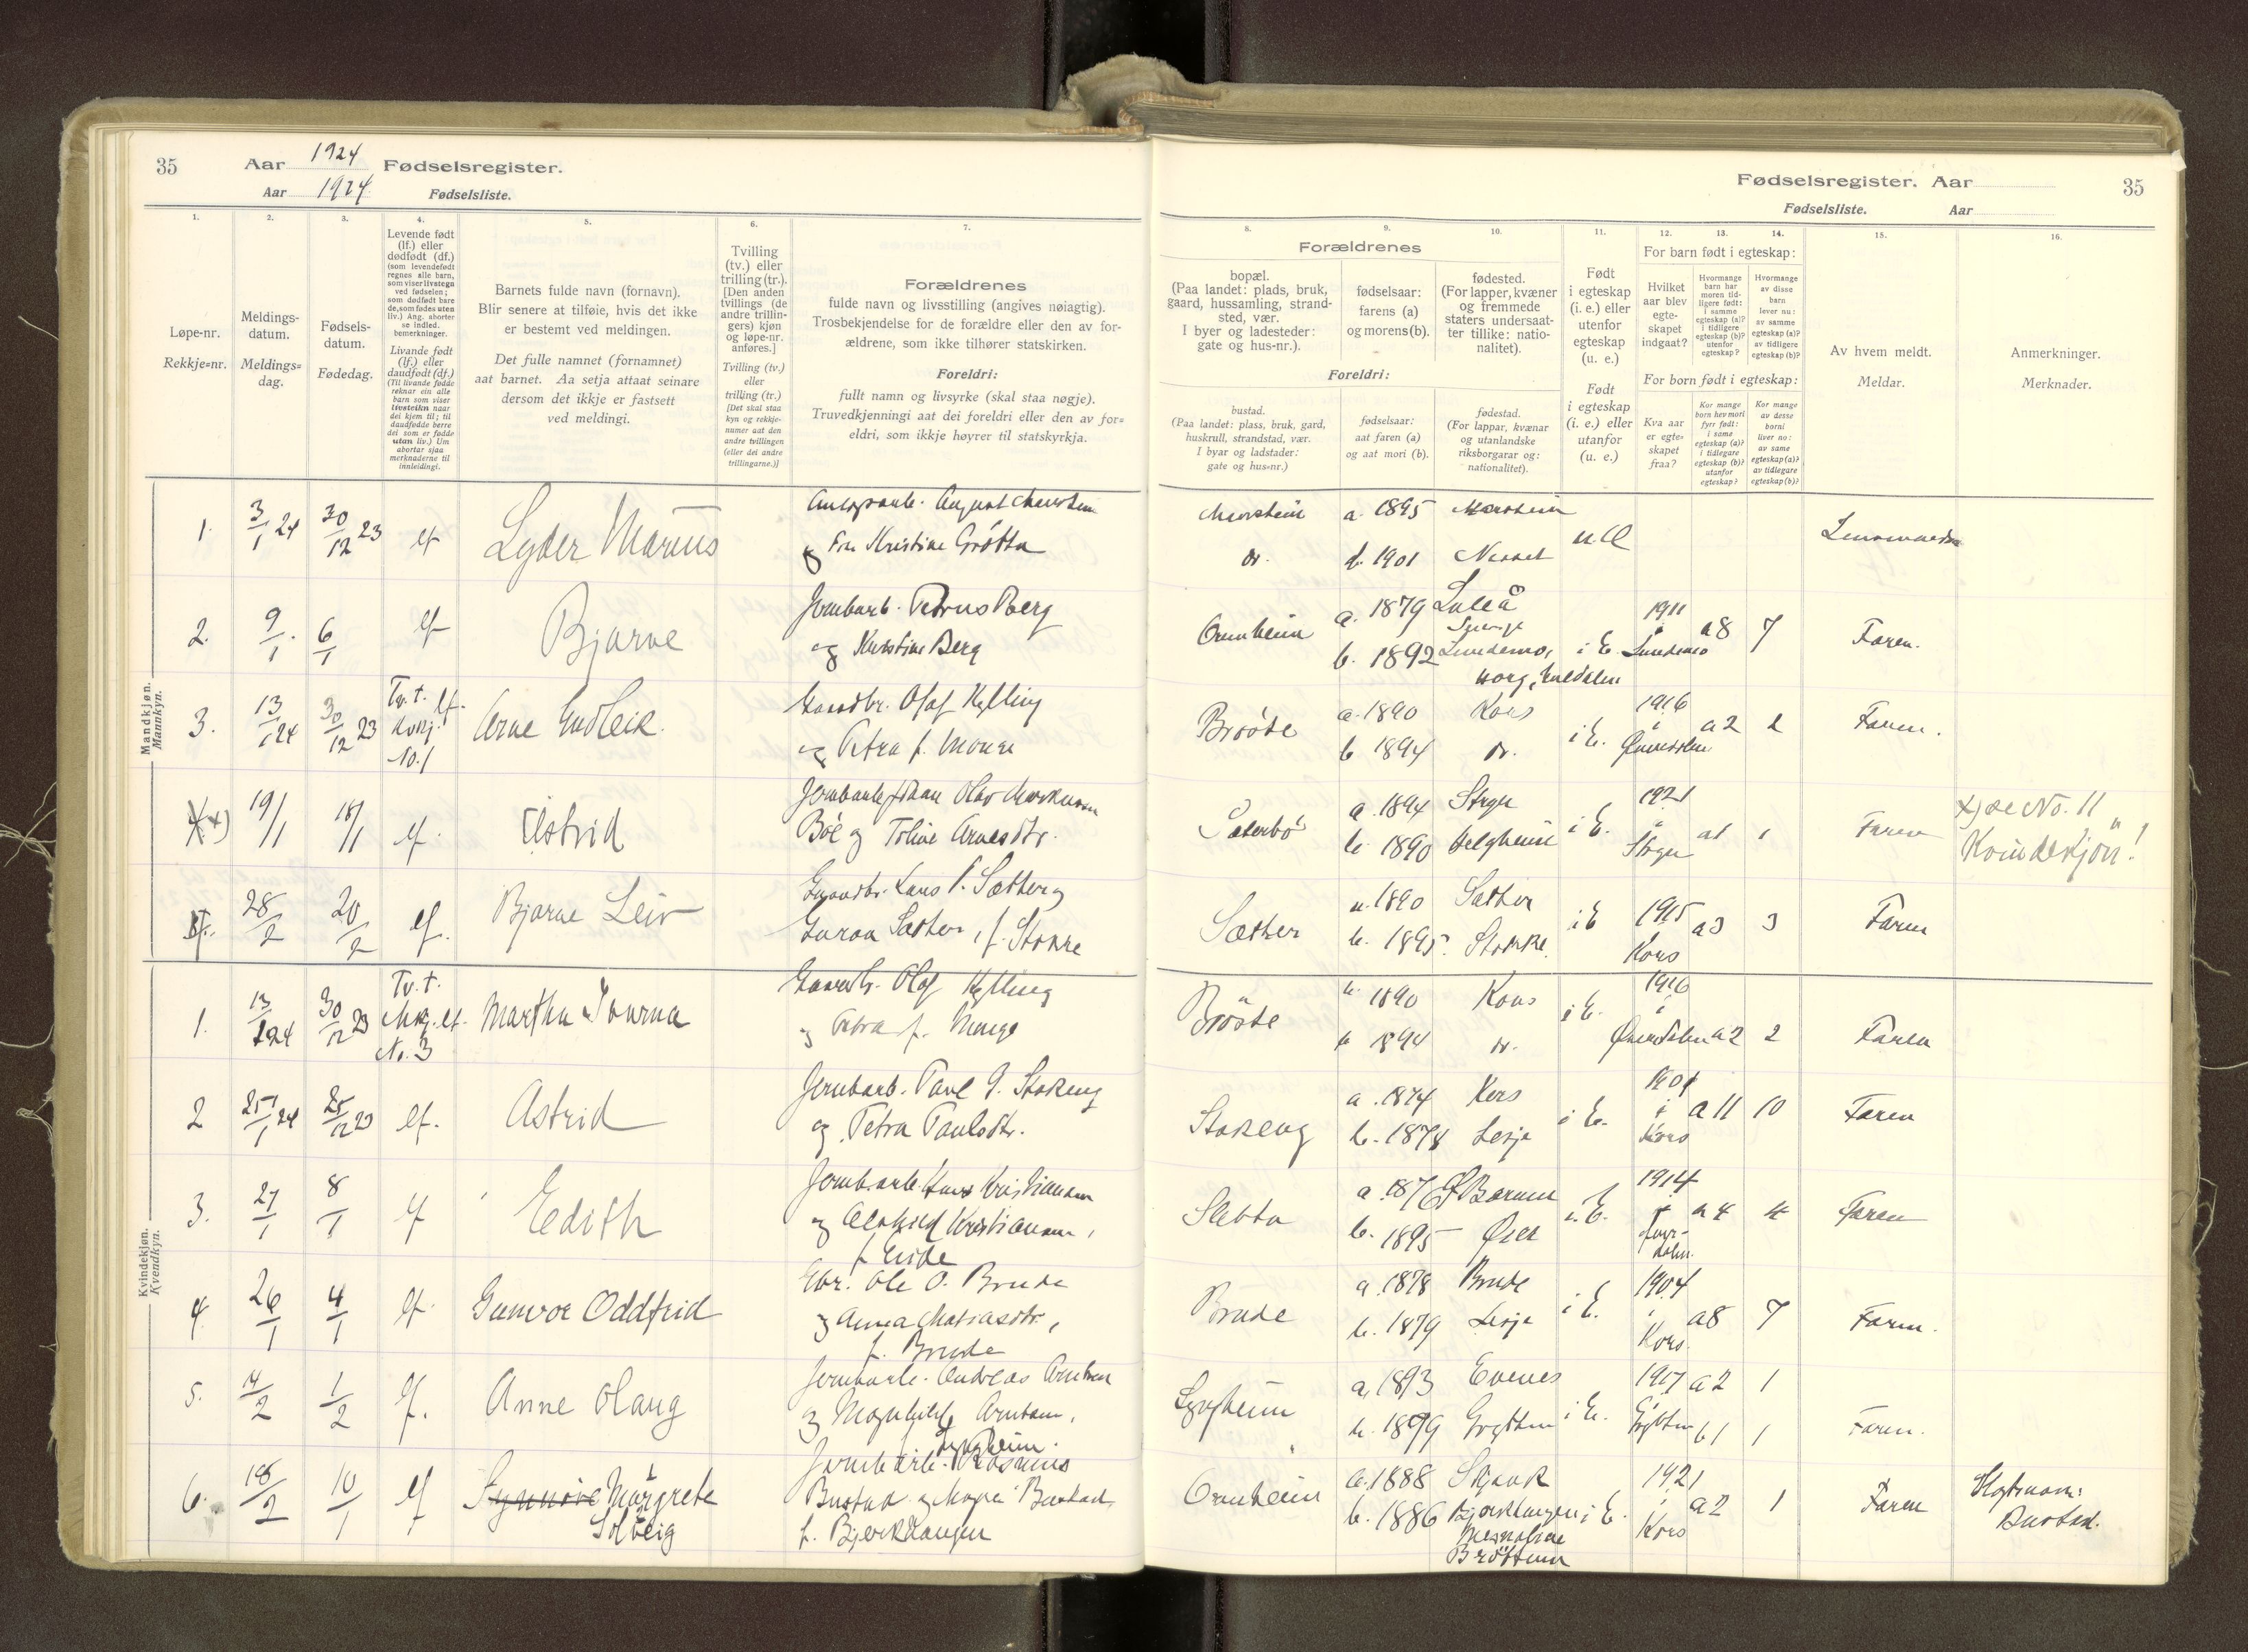 35 Aar 1924 Fødselsregister.
Aar 1924. Fødselsliste.
1. 2. 3. 4. 5. 6. 7.
Løpe-nr.
Rekkje=nr.
Meldings-
datum.
Meldings=
dag.
Fødsels-
datum.
Fødedag.
Levende født
(lf.) eller
dødfødt (df.)
(som levendefødt
regnes alle barn,
som viser livstegn
ved fødselen;
som dødfødt bare
de, som fødes uten
liv.) Ang. aborter
se indled.
bemerkninger.
Livande født
(lf.) eller
daudfødt (df.)
(Til livande fødde
reknar ein alle
barn som viser
livsteikn naar
dei kjem til; til
daudfødde berre
dei som er fødde
utan liv.) Um
abortar sjaa
merknaderne til
innleidingi.
Barnets fulde navn (fornavn).
Blir senere at tilføie, hvis det ikke
er bestemt ved meldingen.
Det fulle namnet (fornamnet)
aat barnet. Aa setja attaat seinare
dersom det ikkje er fastsett
ved meldingi.
Tvilling
(tv.) eller
trilling (tr.).
[Den anden
tvillings (de
andre trillin-
gers) kjøn
og løpe-nr.
anføres.]
Tvilling (tv.)
eller
trilling (tr.)
[Det skal staa
kyn og rekkje-
numer aat den
andre tvillingen
(eller dei andre
trillingarne.)]
Forældrenes
fulde navn og livsstilling (angives nøiagtig).
Trosbekjendelse for de forældre eller den av for-
ældrene, som ikke tilhører statskirken.
Foreldri:
fullt namn og livsyrke (skal staa nøgje).
Truvedkjenningi aat dei foreldri eller den av for=
eldri, som ikkje høyrer til statskyrkja.
Mandkjøn.
Mannkyn.
1. 3/1 24 30/12 23 lf Lyder Marius
og Kristine Grøtta
2. 9/1. 6/1 lf Bjarne Jernbarb. Petrus Berg
og Kristine Berg
3. 13/1 24 30/12 23 Tv. t. lf.
Kvkj.
No. 1
Arne Gudleik. Gaardbr. Olaf Kylling
og Petra f. Monge
x) 19/1 18/1 lf. Astrid Jernbarb. Johan Olav
Böe og Toline Arnesdtr.
5. 28/2 20/2 lf. Bjarne Leiv Gaardbr. Lars P. Sæther og
Guroa Sæther, f. Stokke
Kvindekjøn.
Kvendkyn.
1. 13/1 24 30/12 23 Tv. t.
Mkj. lf.
No. 3
Martha Iverna Gaardbr. Olaf Kylling
og Petra f. Monge
2 25/1 24 25/12 23 lf. Astrid Jernbarb. Paul G. Stokeng
og Petra Paulsdtr.
3. 27/1 8/1 lf Edith Jernbarb. Hans Kristiansen
og Alvhild Kristiansen,
f. Eide
4. 26/1 4/1 lf. Gunvor Oddfrid Gbr. Ole O. Brude
og Anna Matiasdtr.,
f. Brude
5. 14/2 1/2 lf. Anne Olaug Jernbarb. Andreas Arntsen
og Magnhild Arntsen,
Lyngheim.
6. 18/2 10/1 lf Synnøve Margrete
Solveig
Jernbarb. Rasmus
Bustad og Maria Bustad,
f. Bjerkhaugen
Fødselsregister. Aar 35
Fødselsliste. Aar
8. 9. 10. 11. 12. 13. 14. 15. 16.
Forældrenes
bopæl.
(Paa landet: plads, bruk,
gaard, hussamling, strand-
sted, vær.
I byer og ladesteder:
gate og hus-nr.).
fødselsaar:
farens (a)
og morens (b).
fødested.
(For lapper, kvæner
og fremmede
staters undersaat-
ter tillike: natio-
nalitet).
Foreldri:
bustad.
(Paa landet: plass, bruk, gard,
huskrull, strandstad, vær.
I byar og ladstader:
gate og hus=nr.)
fødselsaar:
aat faren (a)
og aat mori (b).
fødestad.
(For lappar, kvænar
og utanlandske
riksborgarar og:
nationalitet).
Født
i egteskap
(i. e.) eller
utenfor
egteskap
(u. e.)
Født
i egteskap
(i. e.) eller
utanfor
(u. e.)
For barn født i egteskap:
Hvilket
aar blev
egte-
skapet
indgaat?
Hvormange
barn har
moren tid-
ligere født:
i samme
egteskap (a)?
i tidligere
egteskap (b)?
utenfor
egteskap?
Hvormange
av disse
barn
lever nu:
av samme
egteskap (a)?
av tidligere
egteskap (b)?
For born født i egteskap:
Kva aar
er egte=
skapet
fraa?
Kor mange
born hev mori
fyrr født:
i same
egteskap (a)?
i tidlegare
egteskap (b)?
utanfor
egteskap?
Kor mange
av desse
borni
liver no:
av same
egteskap (a)?
av tidlegare
egteskap (b)?
Av hvem meldt.
Meldar.
Anmerkninger.
Merknader.
Marstein a. 1895 Marstein u. E
do. b. 1901 Nesset
Ormheim a. 1879 Luleå 1911 a 8 7 Faren.
Sverige
b. 1892 Lundemo, i E. Lundemo
Brøste a. 1890 Kors i E. 1916 a 2 2 Faren.
b 1894 do. i
Øverdalen
Sæterbø a. 1894 Stryn i E. 1921 a1 1 Faren x) se No. 11
b. 1890 Helgheim i Stryn Kvindekjön!
Sæther a. 1890 Sæther i E 1915 a3 3 Faren
b. 1895. Stokke. Kors
Brøste a. 1890 Kors i E. 1916 a 2 2 Faren
b 1894 do. i Øverdalen
Stokeng a. 1874 Kors i E. i a 11 10 Faren
b. 1878 Lesja Kors
Sletta a. 1876 Bærum i. E. 1914 a 4 4 Faren
b. 1895 Øier
Brude a. 1878 Brude i E. 1904 a8 7 Faren.
b. 1879 Lesja i
Kors.
Lyngheim a. 1893 Evenes i E. 1917 a 2 1 Faren.
b. 1899 Grytten i Grytten b 1 1
Ormheim a. 1888 Skjaak i E. 1921 a 2 1 Faren Slegtsnavn:
b. 1886 Bjerkhaugen i Bustad.
Mesnalien Kors
Brøttum